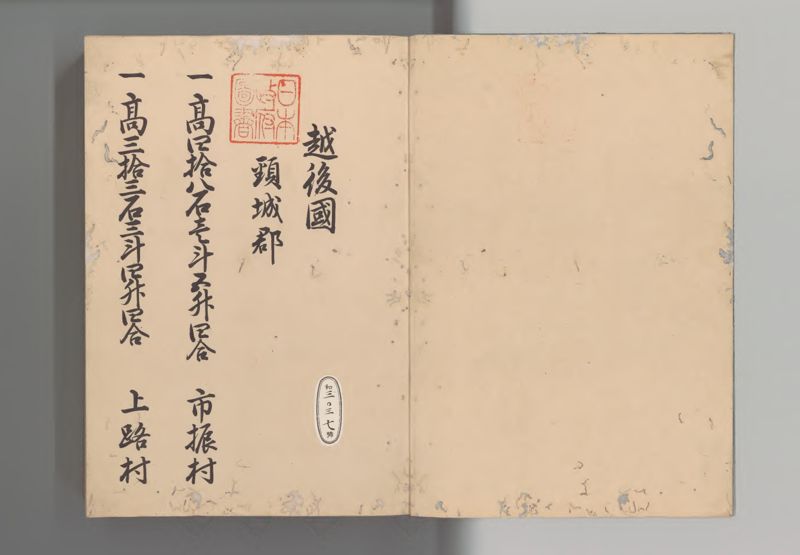 越後國
頸城郡
一高四拾八石壱斗五升四合 市振村
一高三拾三石三斗四升四合 上路村
日本
政府
圖書
和三〇三七號